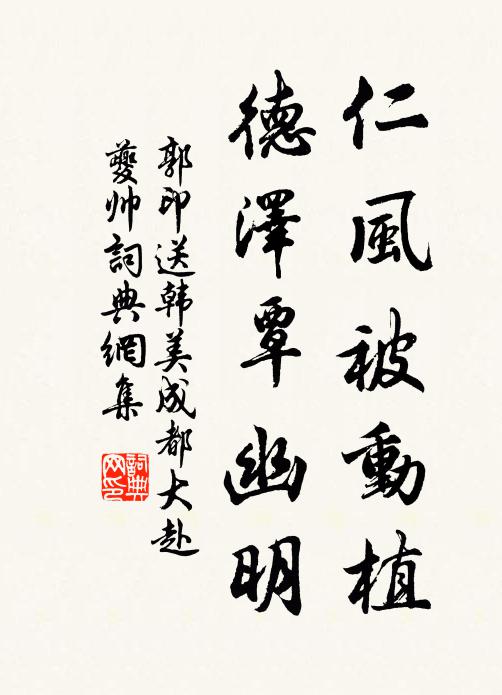 仁風被動植
德澤覃幽明
郭印送韩美成都大赴
夔帅詞典網集
詞典網印